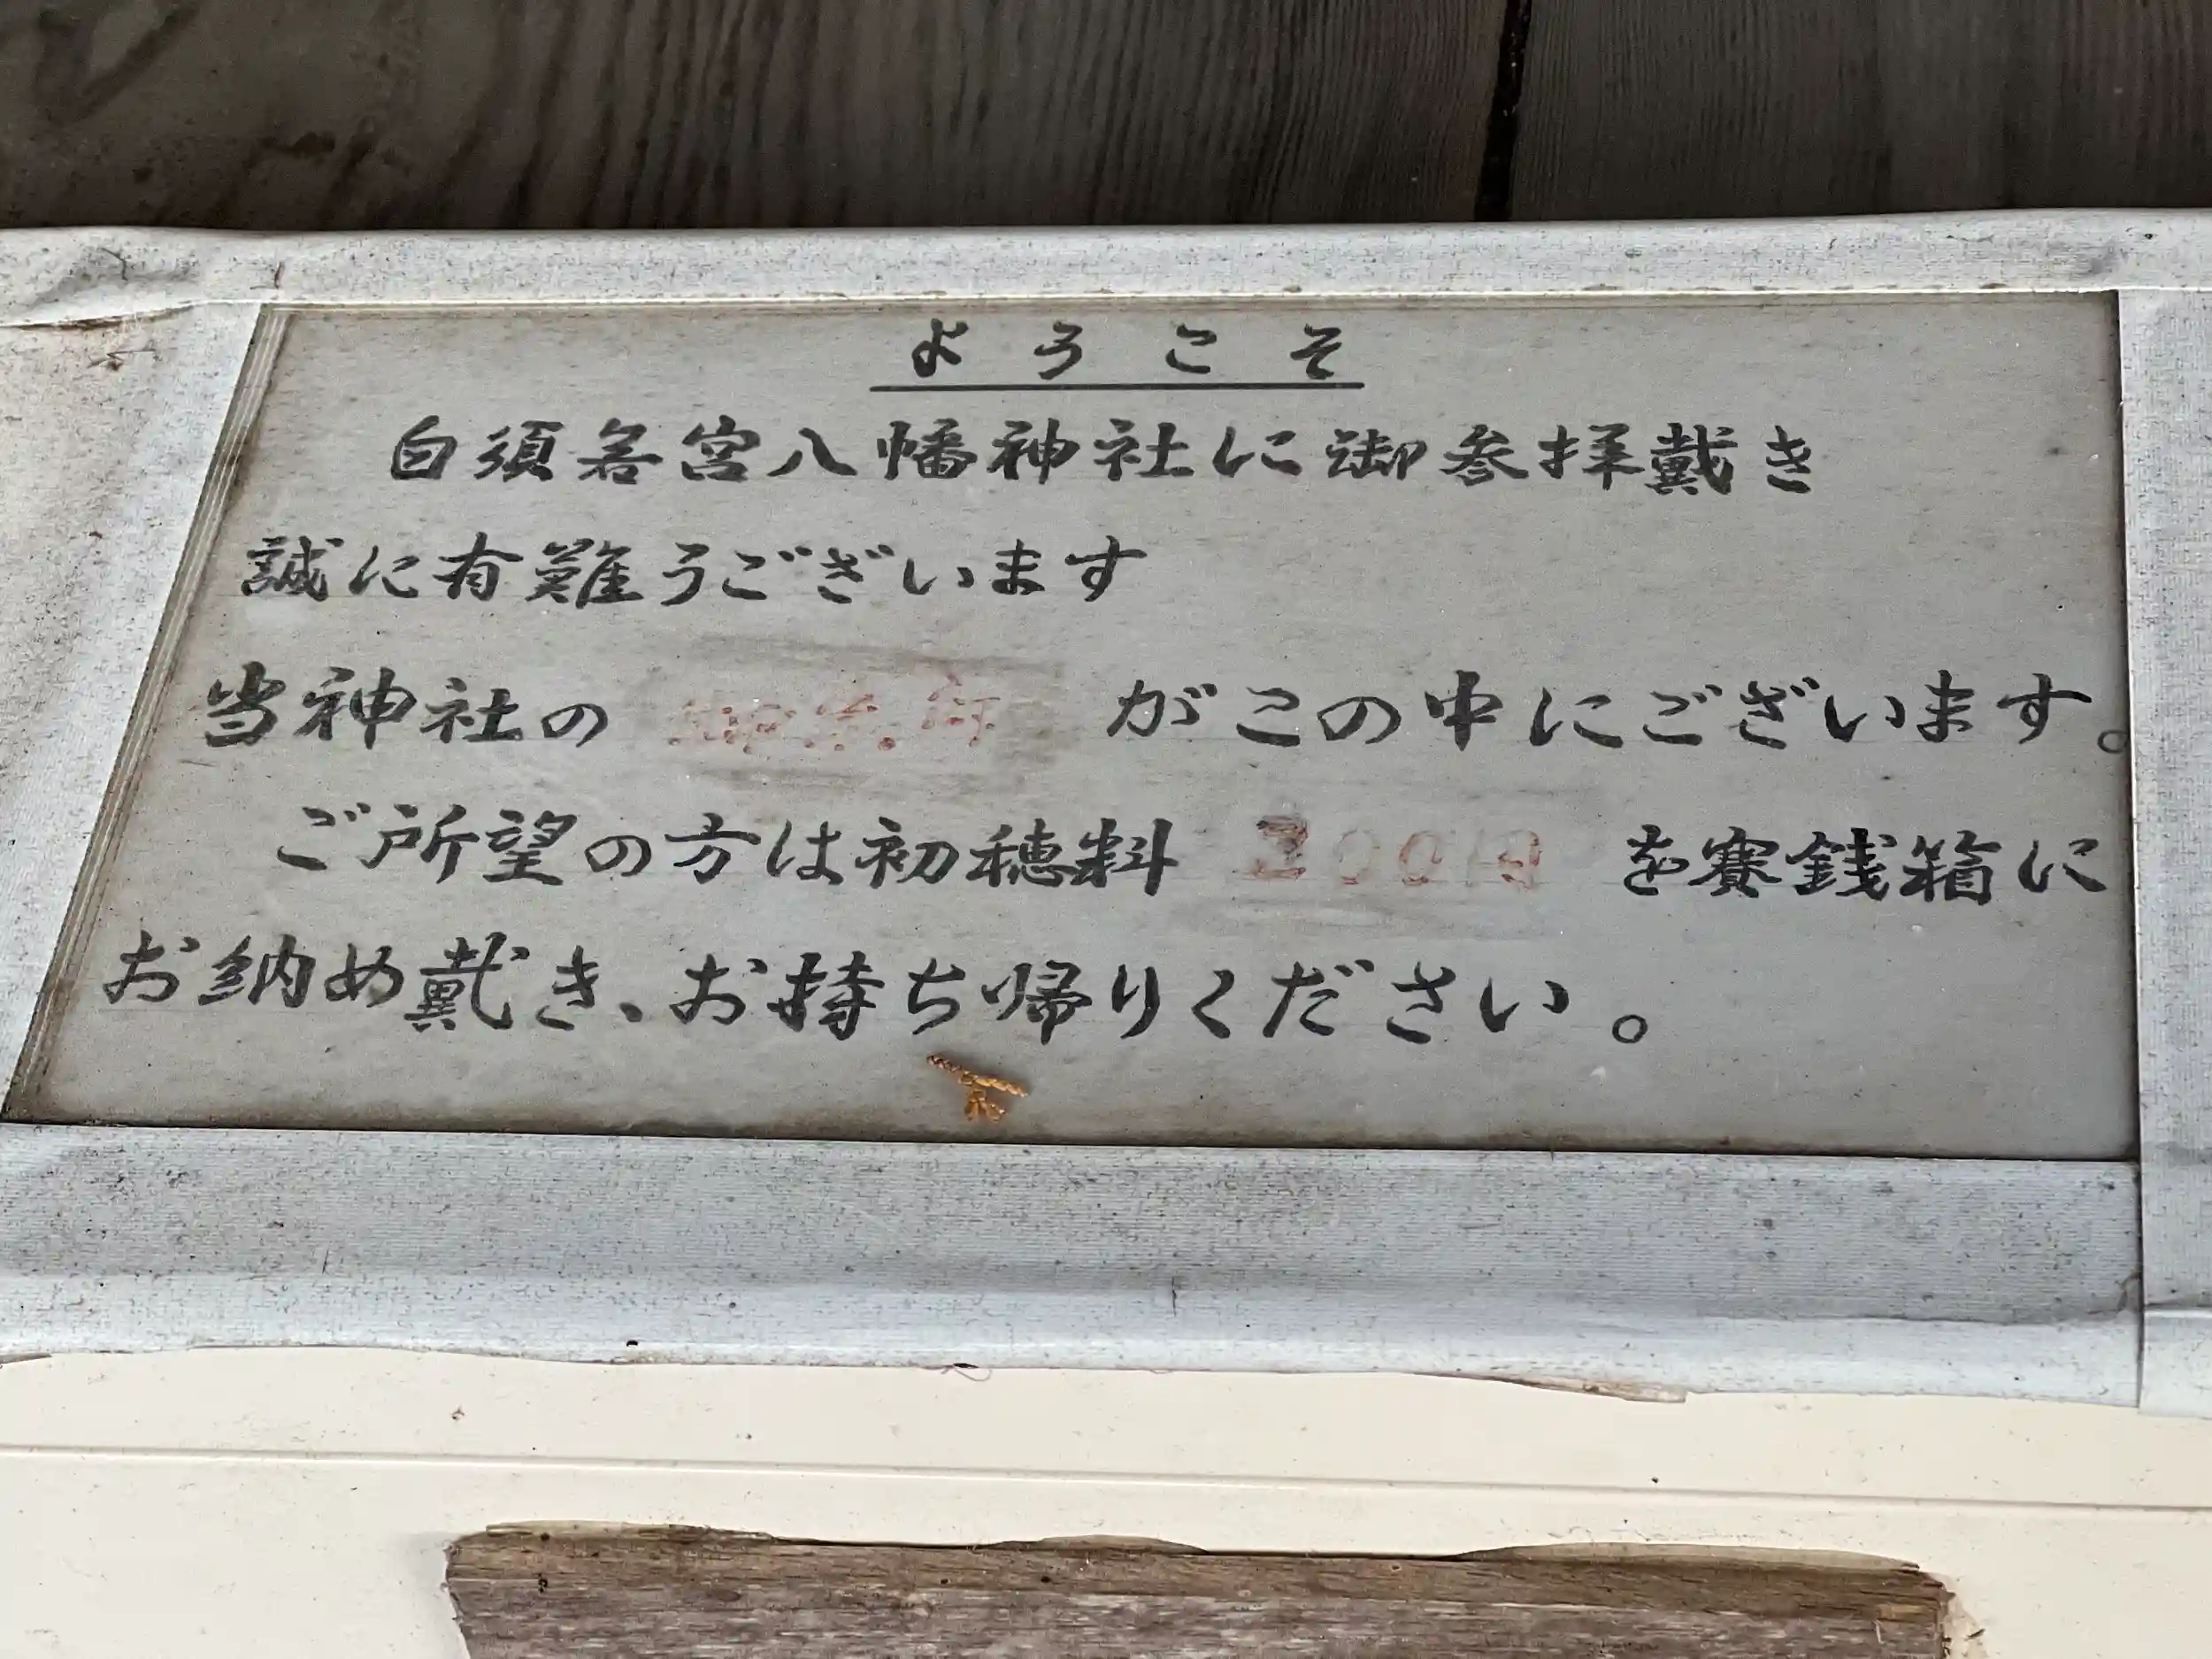 ようこそ
白須若宮八幡神社に御参拝戴き
誠に有難うございます
当神社の がこの中にございます。
ご所望の方は初穂料 200円 を賽銭箱に
お納め戴き、お持ち帰りください。